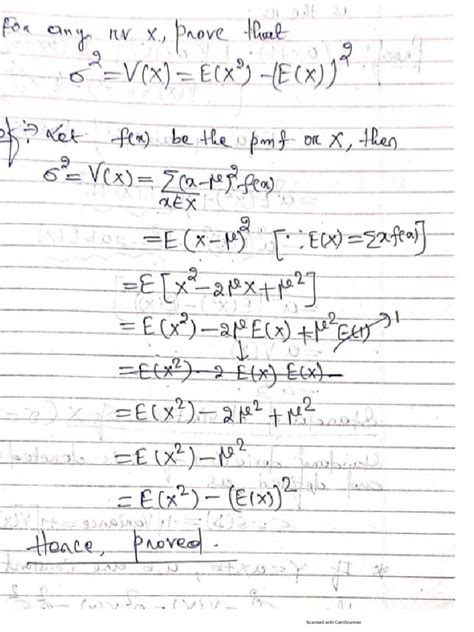 For any rv X, prove that
σ² = V(X) = E(X²) - (E(X))²
⇒ Let f(x) be the pmf on X, then
σ² = V(X) = Σ (x-μ)² f(x)
x∈X
= E(X-μ)² [∵ E(X) = Σxf(x)]
= E[X² - 2μX + μ²]
= E(X²) - 2μE(X) + μ²E(1) → 1
↓
= E(X²) - 2 E(X) E(X) -
= E(X²) - 2μ² + μ²
= E(X²) - μ²
= E(X²) - (E(X))²
Hence, proved.
Scanned with CamScanner